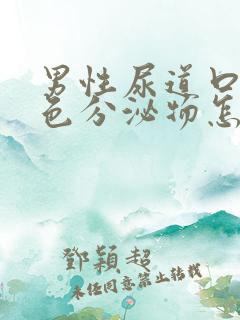 男性尿道口
色分泌物怎
鄧穎超
未经同意禁止转载